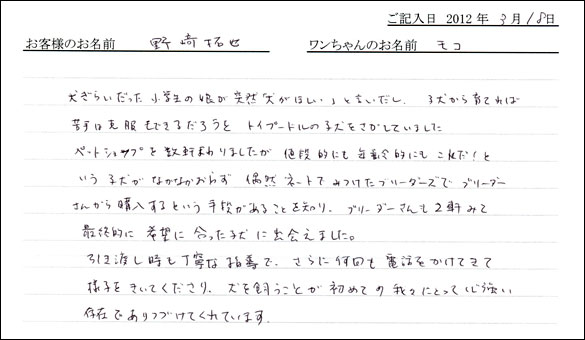 ご記入日 2012年 3月18日
お客様のお名前 野﨑拓也 ワンちゃんのお名前 モコ
犬ぎらいだった小学生の娘が突然「犬がほしい」と言いだし、子犬から育てれば
苦手は克服もできるだろうと トイプードルの子犬をさがしていました
ペットショップを数軒まわりましたが 値段的にも年齢的にもこれだ!と
いう子犬がなかなかおらず 偶然ネットでみつけたブリーダーズで ブリーダー
さんから購入するという手段があることを知り、ブリーダーさんも2軒みて
最終的に希望に合った子犬に出会えました。
引き渡し時も丁寧な指導で、さらに何回も電話をかけてきて
様子をきいてくださり、犬を飼うことが初めての我々にとって心強い
存在でありつづけてくれています。